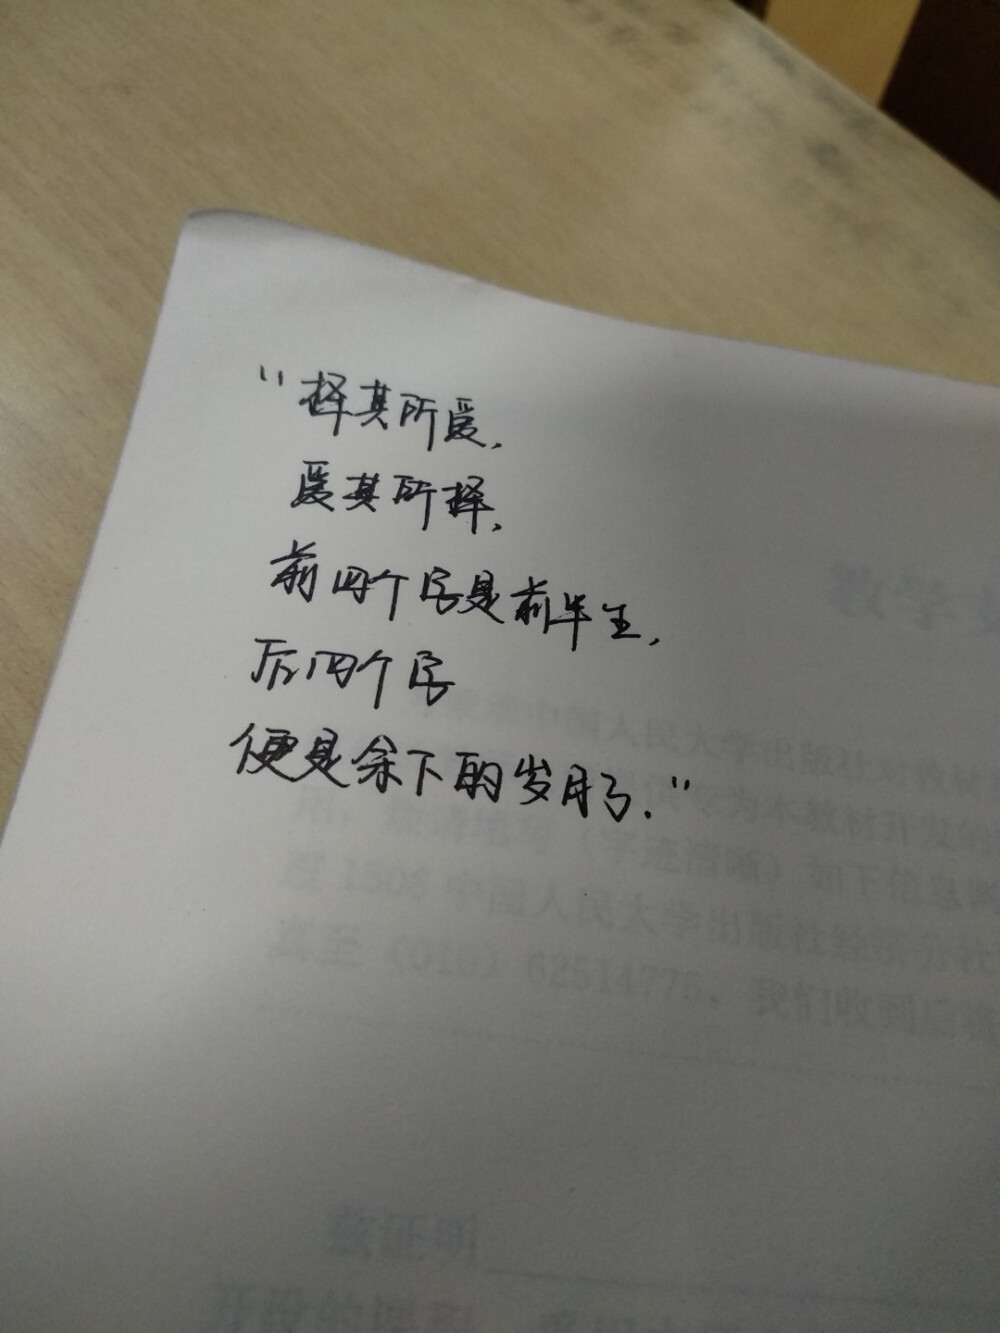 “择其所爱,
爱其所择,
前四个字是前半生,
后四个字
便是余下的岁月了.”
教学
中国人民大学出版社
为本教材开发的
(字迹清晰)如下信息
1508 中国人民大学出版社经济分社
真至 (010) 62514775, 我们收到后
兹证明